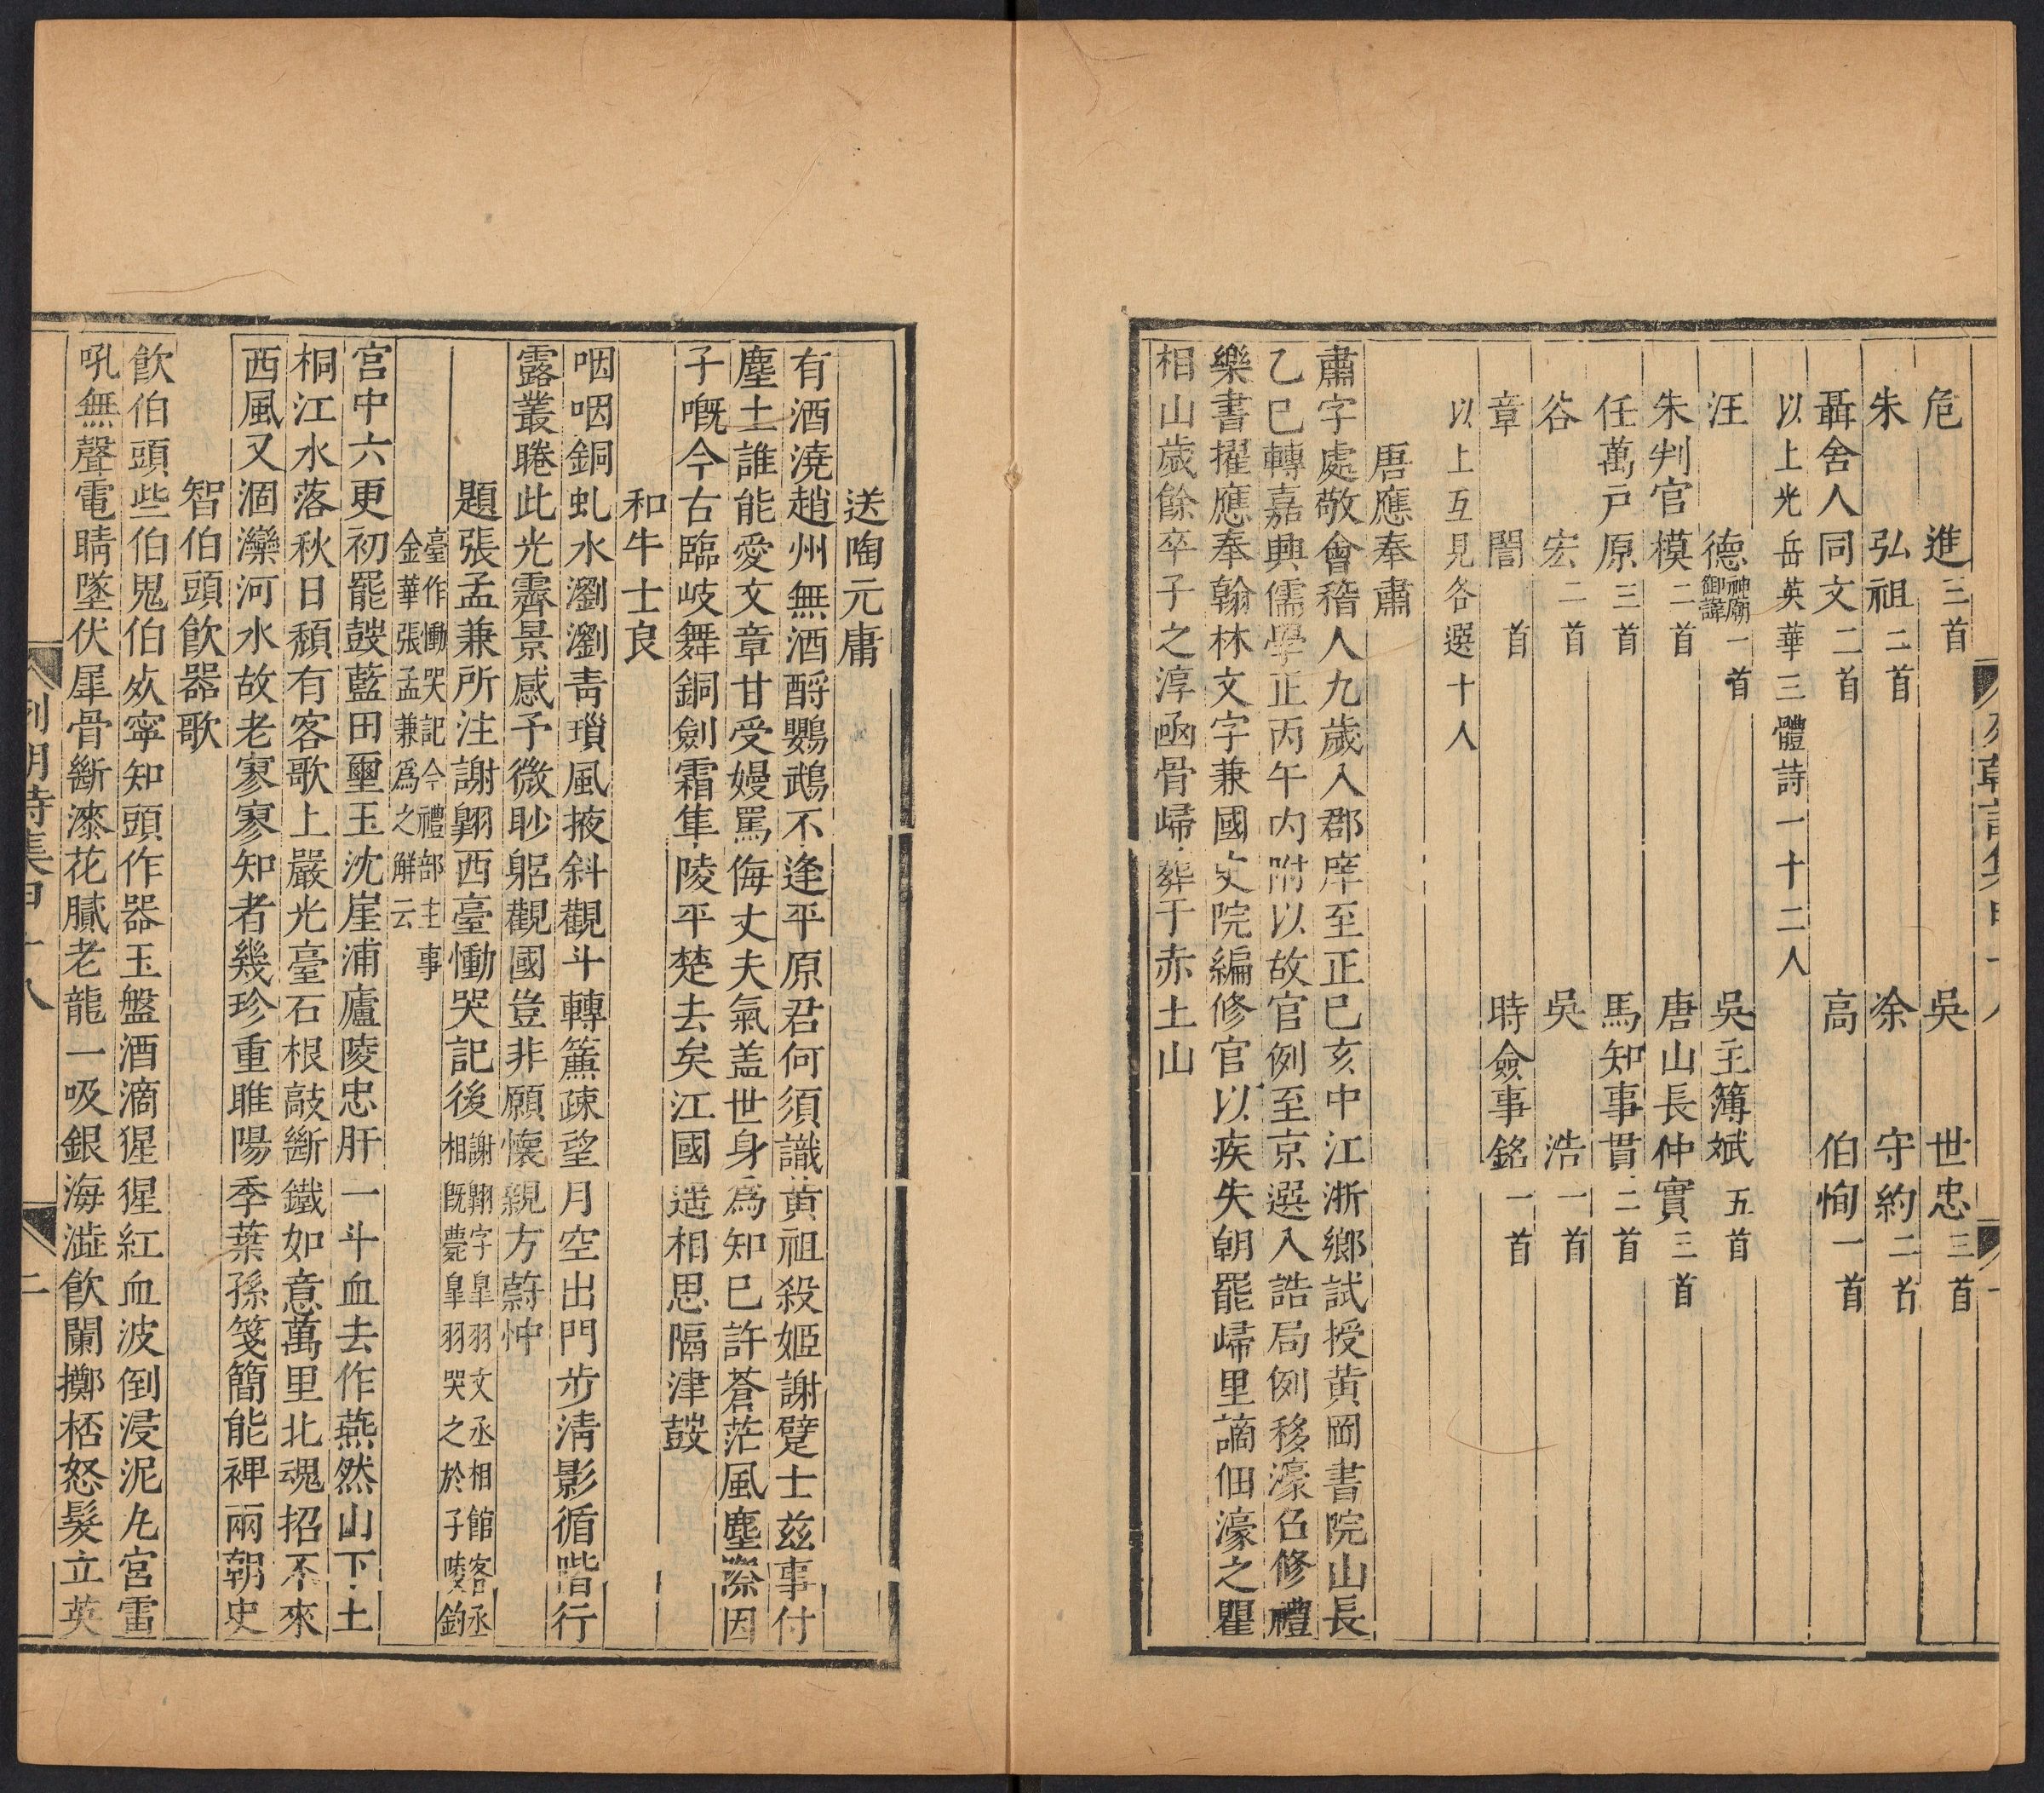 列朝詩集甲十八
一
危　進三首　吳　世忠三首
朱　弘祖二首　余　守約二首
聶舍人同文二首　高　伯恂一首
以上光岳英華三體詩一十二人
汪　德神廟御諱一首　吳主簿斌五首
朱判官模二首　唐山長仲實三首
任萬戸原三首　馬知事貫二首
谷　宏二首　吳　浩一首
章　誾首　時僉事銘一首
以上互見各選十人
唐應奉肅
肅字處敬會稽人九歲入郡庠至正巳亥中江浙鄉試授黃岡書院山長
乙巳轉嘉興儒學正丙午內附以故官例至京選入誥局例移濠召修禮
樂書擢應奉翰林文字兼國史院編修官以疾失朝罷歸里謫佃濠之瞿
相山歲餘卒子之淳函骨歸葬于赤土山
送陶元庸
有酒澆趙州無酒酹鸚鵡不逢平原君何須識黃祖殺姬謝躄士兹事付
塵土誰能愛文章甘受嫚罵侮丈夫氣蓋世身爲知巳許蒼茫風塵際因
子嘅今古臨岐舞銅劍霜隼陵平楚去矣江國遥相思隔津鼓
和牛士良
咽咽銅虬水瀏瀏靑瑣風掖斜觀斗轉簾疎望月空出門步淸影循階行
露叢睠此光霽景感予微眇躬觀國豈非願懷親方蔚忡
題張孟兼所注謝翺西臺慟哭記後謝翺字皐羽文丞相館客丞相旣薨皐羽哭之於子陵釣
臺作慟哭記今禮部主事金華張孟兼爲之解云
宫中六更初罷鼓藍田璽玉沈崖浦廬陵忠肝一斗血去作燕然山下土
桐江水落秋日頹有客歌上嚴光臺石根敲斷鐵如意萬里北魂招不來
西風又涸灤河水故老寥寥知者幾珍重睢陽季葉孫箋簡能裨兩朝史
智伯頭飲器歌
飲伯頭些伯鬼伯夾寧知頭作器玉盤酒滴猩猩紅血波倒浸泥九宮雷
吼無聲電睛墜伏犀骨斷漆花膩老龍一吸銀海澁飲闌擲桮怒髮立英
列朝詩集甲十八
二